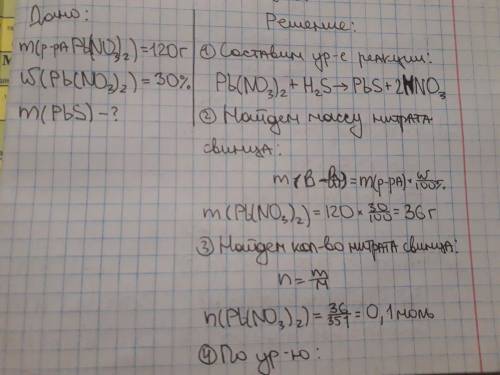 Дано:
m(р-ра Pb(NO₃)₂)=120г
ω(Pb(NO₃)₂)=30%
m(PbS)-?
Решение:
① Составим ур-е реакции:
Pb(NO₃)₂+H₂S→PbS+2HNO₃
② Найдем массу нитрата
свинца:
m(В-ва)=m(р-ра)·ω/100%
m(Pb(NO₃)₂)=120×30/100=36г
③ Найдем кол-во нитрата свинца:
n=m/M
n(Pb(NO₃)₂)=36/331=0,1моль
④ По ур-ю: